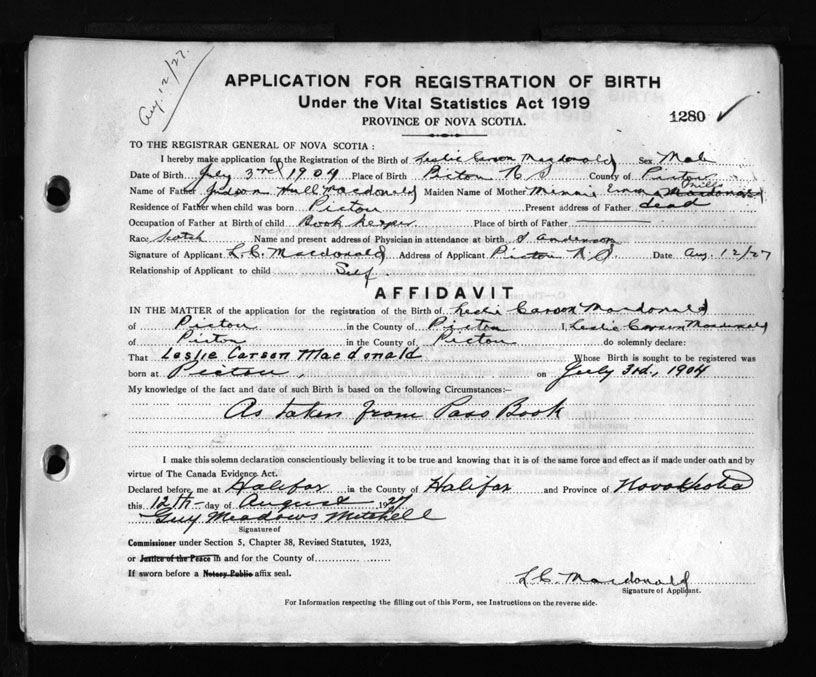 Aug. 12/27.
APPLICATION FOR REGISTRATION OF BIRTH
Under the Vital Statistics Act 1919
PROVINCE OF NOVA SCOTIA.
1280 ✓
TO THE REGISTRAR GENERAL OF NOVA SCOTIA :
I hereby make application for the Registration of the Birth of Leslie Carson Macdonald Sex Male
Date of Birth July 3rd 1904 Place of Birth Pictou N S County of Pictou
Name of Father Judson Hull Macdonald Maiden Name of Mother Minnie Emma Mills Macdonald
Residence of Father when child was born Pictou Present address of Father dead
Occupation of Father at Birth of child Book Keeper Place of birth of Father
Race Scotch Name and present address of Physician in attendance at birth Anderson
Signature of Applicant L. C. Macdonald Address of Applicant Pictou N.S. Date Aug. 12/27
Relationship of Applicant to child Self.
AFFIDAVIT
IN THE MATTER of the application for the registration of the Birth of Leslie Carson Macdonald
of Pictou in the County of Pictou I, Leslie Carson Macdonald
of Pictou in the County of Pictou do solemnly declare:
That Leslie Carson Macdonald Whose Birth is sought to be registered was
born at Pictou, on July 3rd, 1904
My knowledge of the fact and date of such Birth is based on the following Circumstances:—
As taken from Pass Book
I make this solemn declaration conscientiously believing it to be true and knowing that it is of the same force and effect as if made under oath and by
virtue of The Canada Evidence Act.
Declared before me at Halifax in the County of Halifax and Province of Nova Scotia
this 12th day of August 1927
Guy Meadows Mitchell
Signature of
Commissioner under Section 5, Chapter 38, Revised Statutes, 1923,
or Justice of the Peace in and for the County of
If sworn before a Notary Public affix seal.
L. C. Macdonald
Signature of Applicant.
For Information respecting the filling out of this Form, see Instructions on the reverse side.